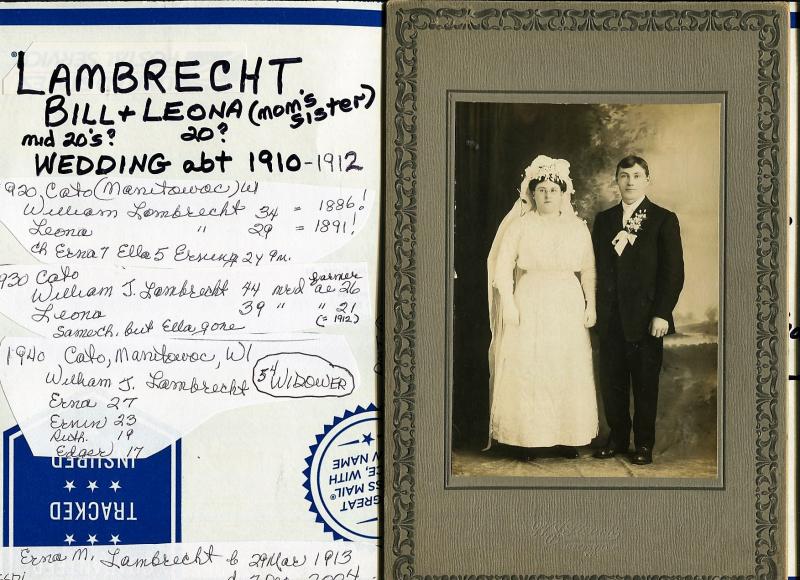 LAMBRECHT
BILL + LEONA (mom's sister)
mid 20's? 20?
WEDDING abt 1910-1912
920, Cato (Manitowoc) WI
William Lambrecht 34 = 1886!
Leona " 29 = 1891!
ch Erna 7 Ella 5 2y 9m.
930 Cato
William J. Lambrecht 44 mrd ae 26 farmer
Leona 39 " " 21
(= 1912)
Same ch. but Ella gone
1940 Cato, Manitowoc, WI
William J. Lambrecht 54 WIDOWER
Erna 27
Ervin 23
Ruth 19
Edgar 17
INSURED
TRACKED
GREAT
SS MAIL®
CE, WITH
W NAME
Erna M. Lambrecht b 29 Mar 1913